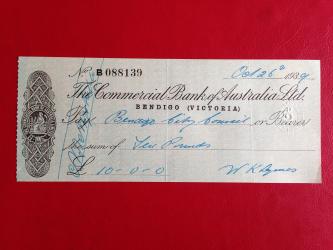 No B 088139 Oct 26th 1939
The Commercial Bank of Australia Ltd.
BENDIGO (VICTORIA)
Pay Bendigo City Council or Bearer
the sum of Ten Pounds
£ 10-0-0